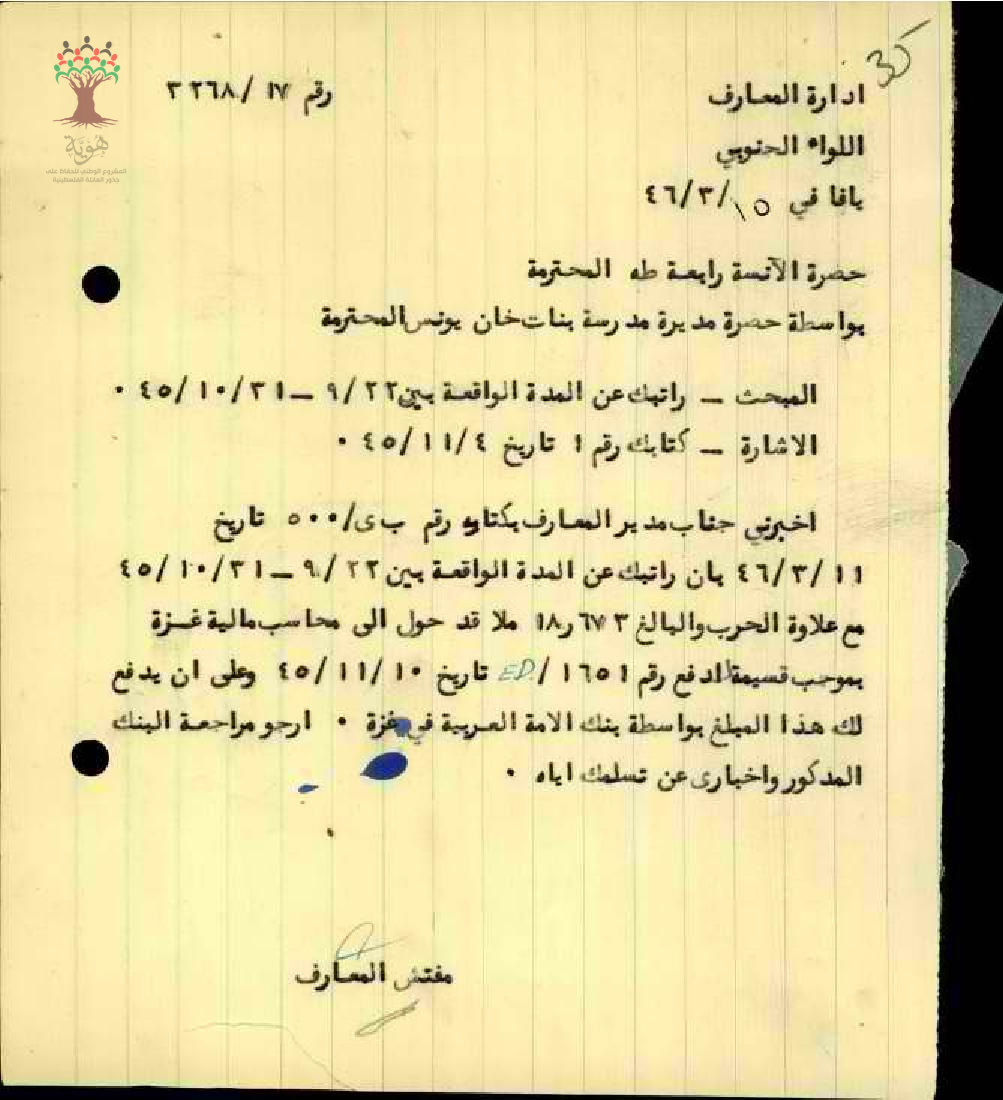 35
هَويَّة
المشروع الوطني للحفاظ على
جذور العائلة الفلسطينية
ادارة المعارف
رقم ١٧ /٣٢٦٨
اللواء الجنوبي
يافا في ١٥/٣/٤٦
حضرة الآنسة رابعة طه المحترمة
بواسطة حضرة مديرة مدرسة بنات خان يونس المحترمة
المبحث – راتبك عن المدة الواقعة بين ٩/٢٢ – ٤٥/١٠/٣١ ٠
الاشارة – كتابك رقم ١ تاريخ ٤٥/١١/٤ ٠
اخبرني جناب مدير المعارف بكتابه رقم ب ى/٥٠٠ تاريخ
٤٦/٣/١١ بان راتبك عن المدة الواقعة بين ٩/٢٢ – ٤٥/١٠/٣١
مع علاوة الحرب والبالغ ٦٧٣ر١٨ ملا قد حول الى محاسب مالية غزة
بموجب قسيمة الدفع رقم ١٦٥١/ED. تاريخ ٤٥/١١/١٠ وعلى ان يدفع
لك هذا المبلغ بواسطة بنك الامة العربية في غزة ٠ ارجو مراجعة البنك
المذكور واخبارى عن تسلمك اياه ٠
مفتش المعارف